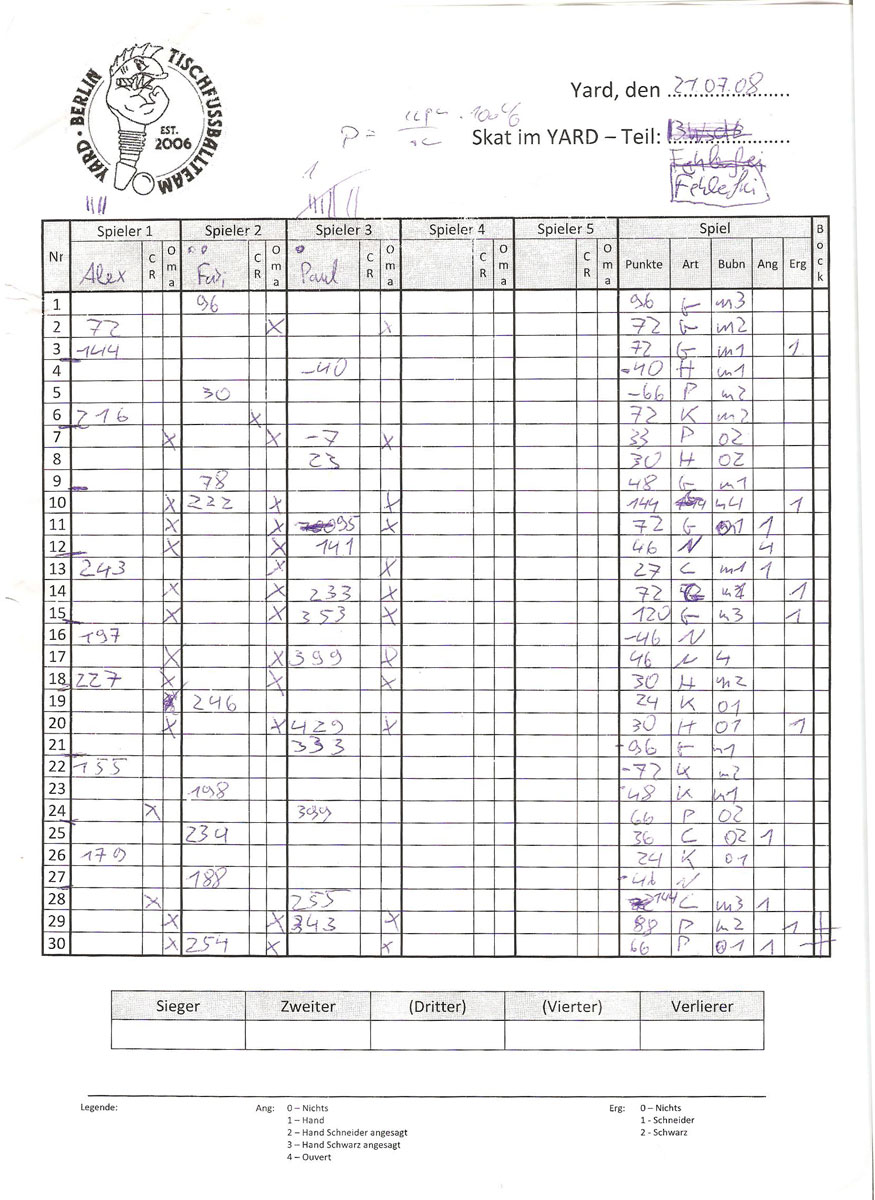 YARD · BERLIN
TISCHFUSSBALLTEAM
EST.
2006
Yard, den 21.07.08
P =
Skat im YARD – Teil:
Nr
Spieler 1 Spieler 2 Spieler 3 Spieler 4 Spieler 5 Spiel Bock
Alex CR Oma CR Oma Paul CR Oma CR Oma CR Oma Punkte Art Bubn Ang Erg
1 96 96 G m3
2 72 X X 72 G m2
3 144 72 G m1 1
4 -40 -40 H m1
5 30 -66 P m2
6 216 X 72 K m2
7 X X -7 X 33 P 02
8 23 30 H 02
9 78 48 G m1
10 X 222 X X 144 m4 1
11 X X 95 X 72 G 1
12 X X 141 46 N 4
13 243 X X 27 C m1 1
14 X X 233 X 72 1
15 X X 353 X 120 G m3 1
16 197 -46 N
17 X X 399 X 46 N 4
18 227 X X X 30 H m2
19 246 24 K 01
20 X X 429 X 30 H 01 1
21 333 -96 G m1
22 155 -72 K m2
23 198 -48 K m1
24 X 399 66 P 02
25 234 36 C 02 1
26 179 24 K 01
27 188 -46 N
28 X 255 144 C m3 1
29 X X 343 X 88 P m2 1
30 X 254 X X 66 P 01 1
Sieger Zweiter (Dritter) (Vierter) Verlierer
Legende: Ang: 0 – Nichts Erg: 0 – Nichts
1 – Hand 1 - Schneider
2 – Hand Schneider angesagt 2 - Schwarz
3 – Hand Schwarz angesagt
4 – Ouvert